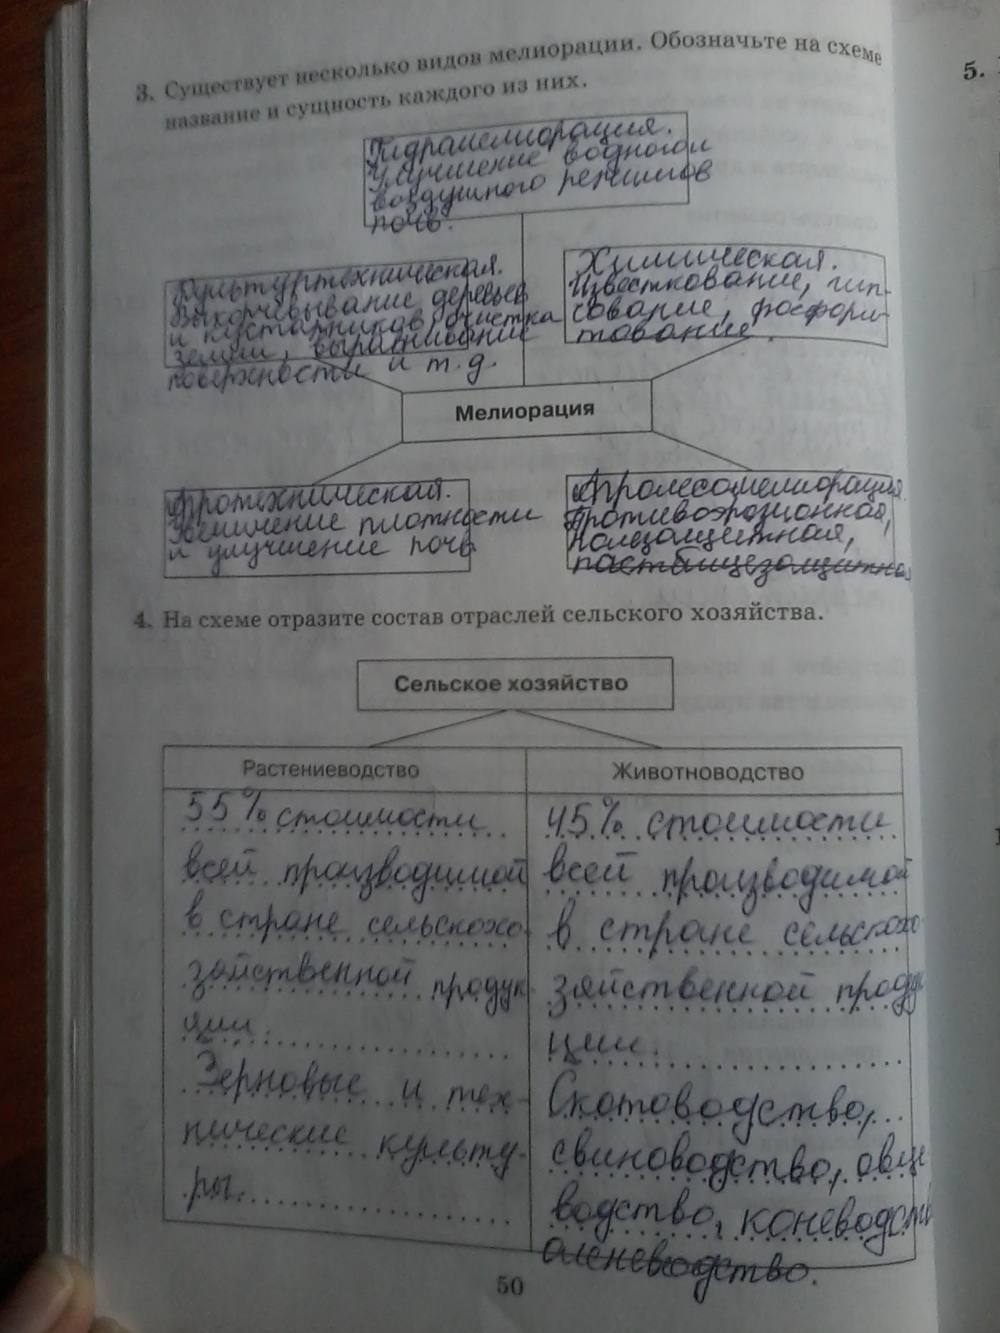 3. Существует несколько видов мелиорации. Обозначьте на схеме
название и сущность каждого из них.
Гидромелиорация.
Улучшение водного и
воздушного режимов
почв.
Культуртехническая.
Выкорчевывание деревьев
и кустарников, очистка
земли, выравнивание
поверхности и т.д.
Химическая.
Известкование, гип-
сование, фосфори-
тование.
Мелиорация
Агротехническая.
Увеличение плотности
и улучшение почв
Агролесомелиорация.
Противоэрозионная,
полезащитная,
пастбищезащитная
5.
4. На схеме отразите состав отраслей сельского хозяйства.
Сельское хозяйство
Растениеводство
55% стоимости
всей производимой
в стране сельскохо-
зяйственной продук-
ции.
Зерновые и тех-
нические культу-
ры.
Животноводство
45% стоимости
всей производимой
в стране сельскохо
зяйственной проду
ции.
Скотоводство,
свиноводство, овце
водство, коневодств
оленеводство.
50